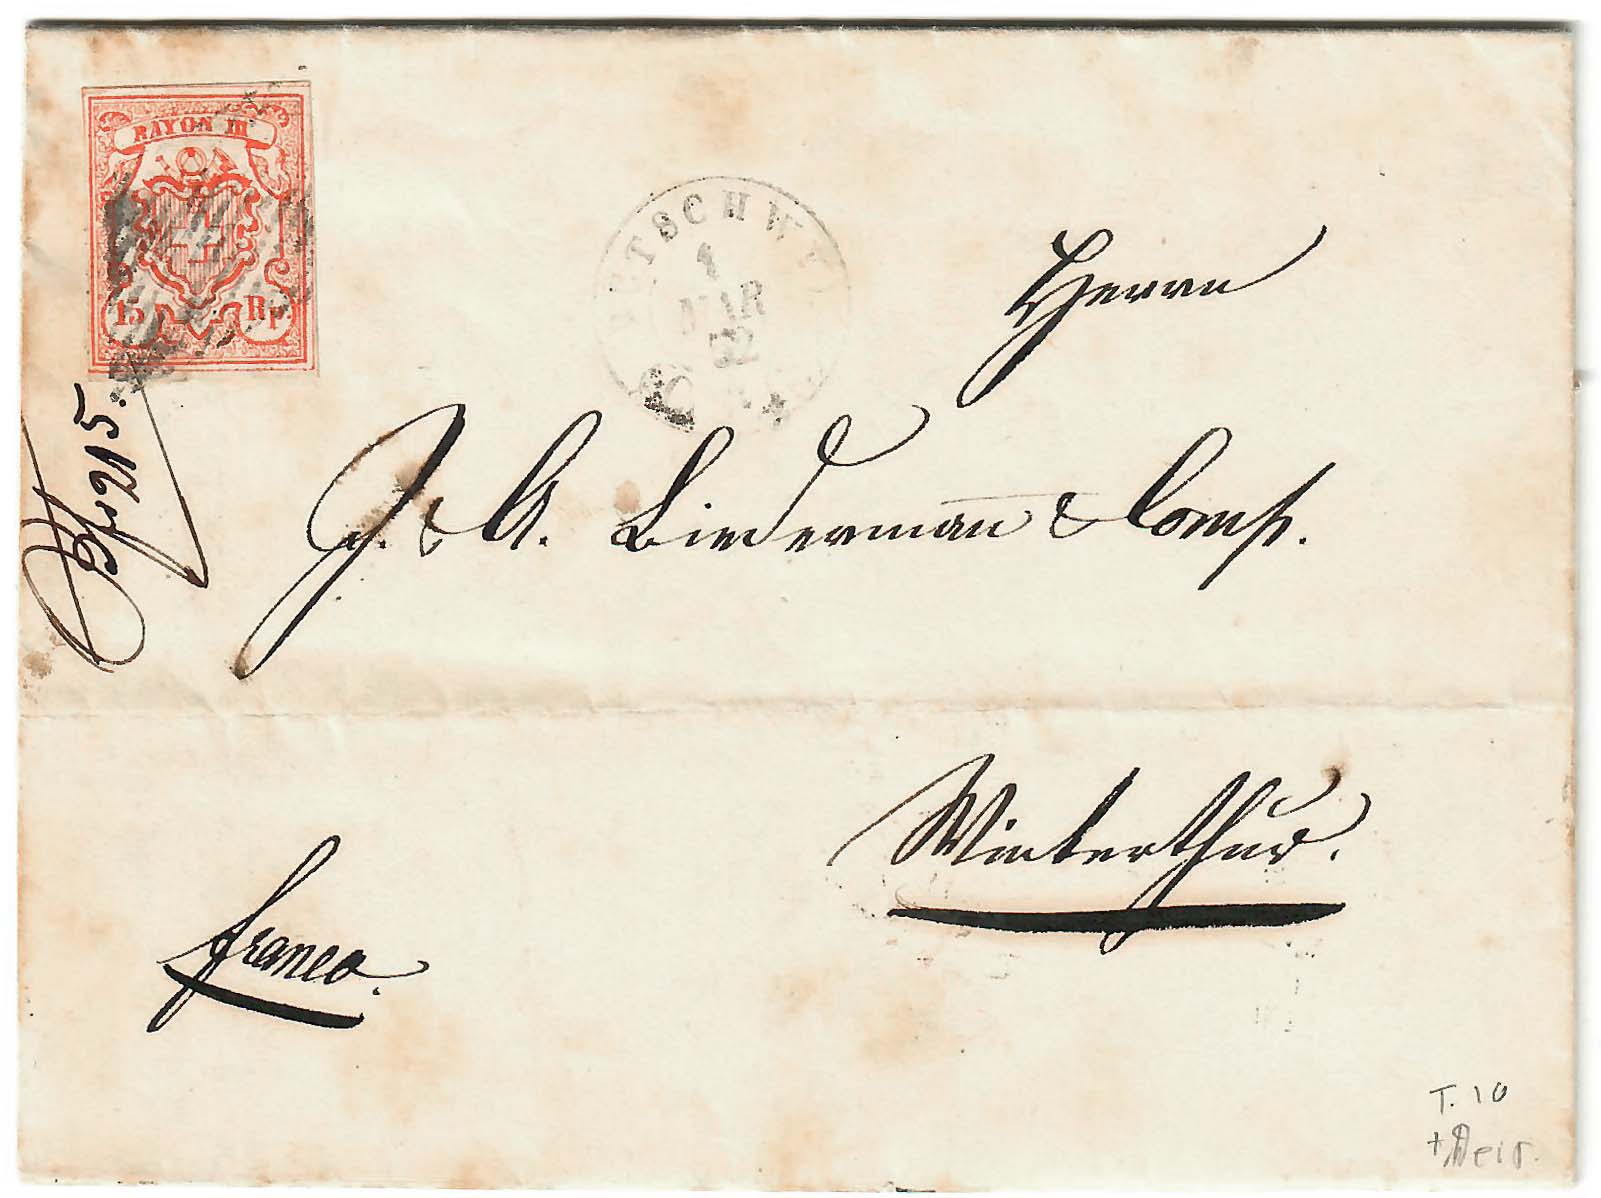 RAYON III
15 Rp
ETSCHWY
1
MAR
52
Herrn
J. & A. Biedermañ & Comp.
Winterthur.
franco.
T. 10